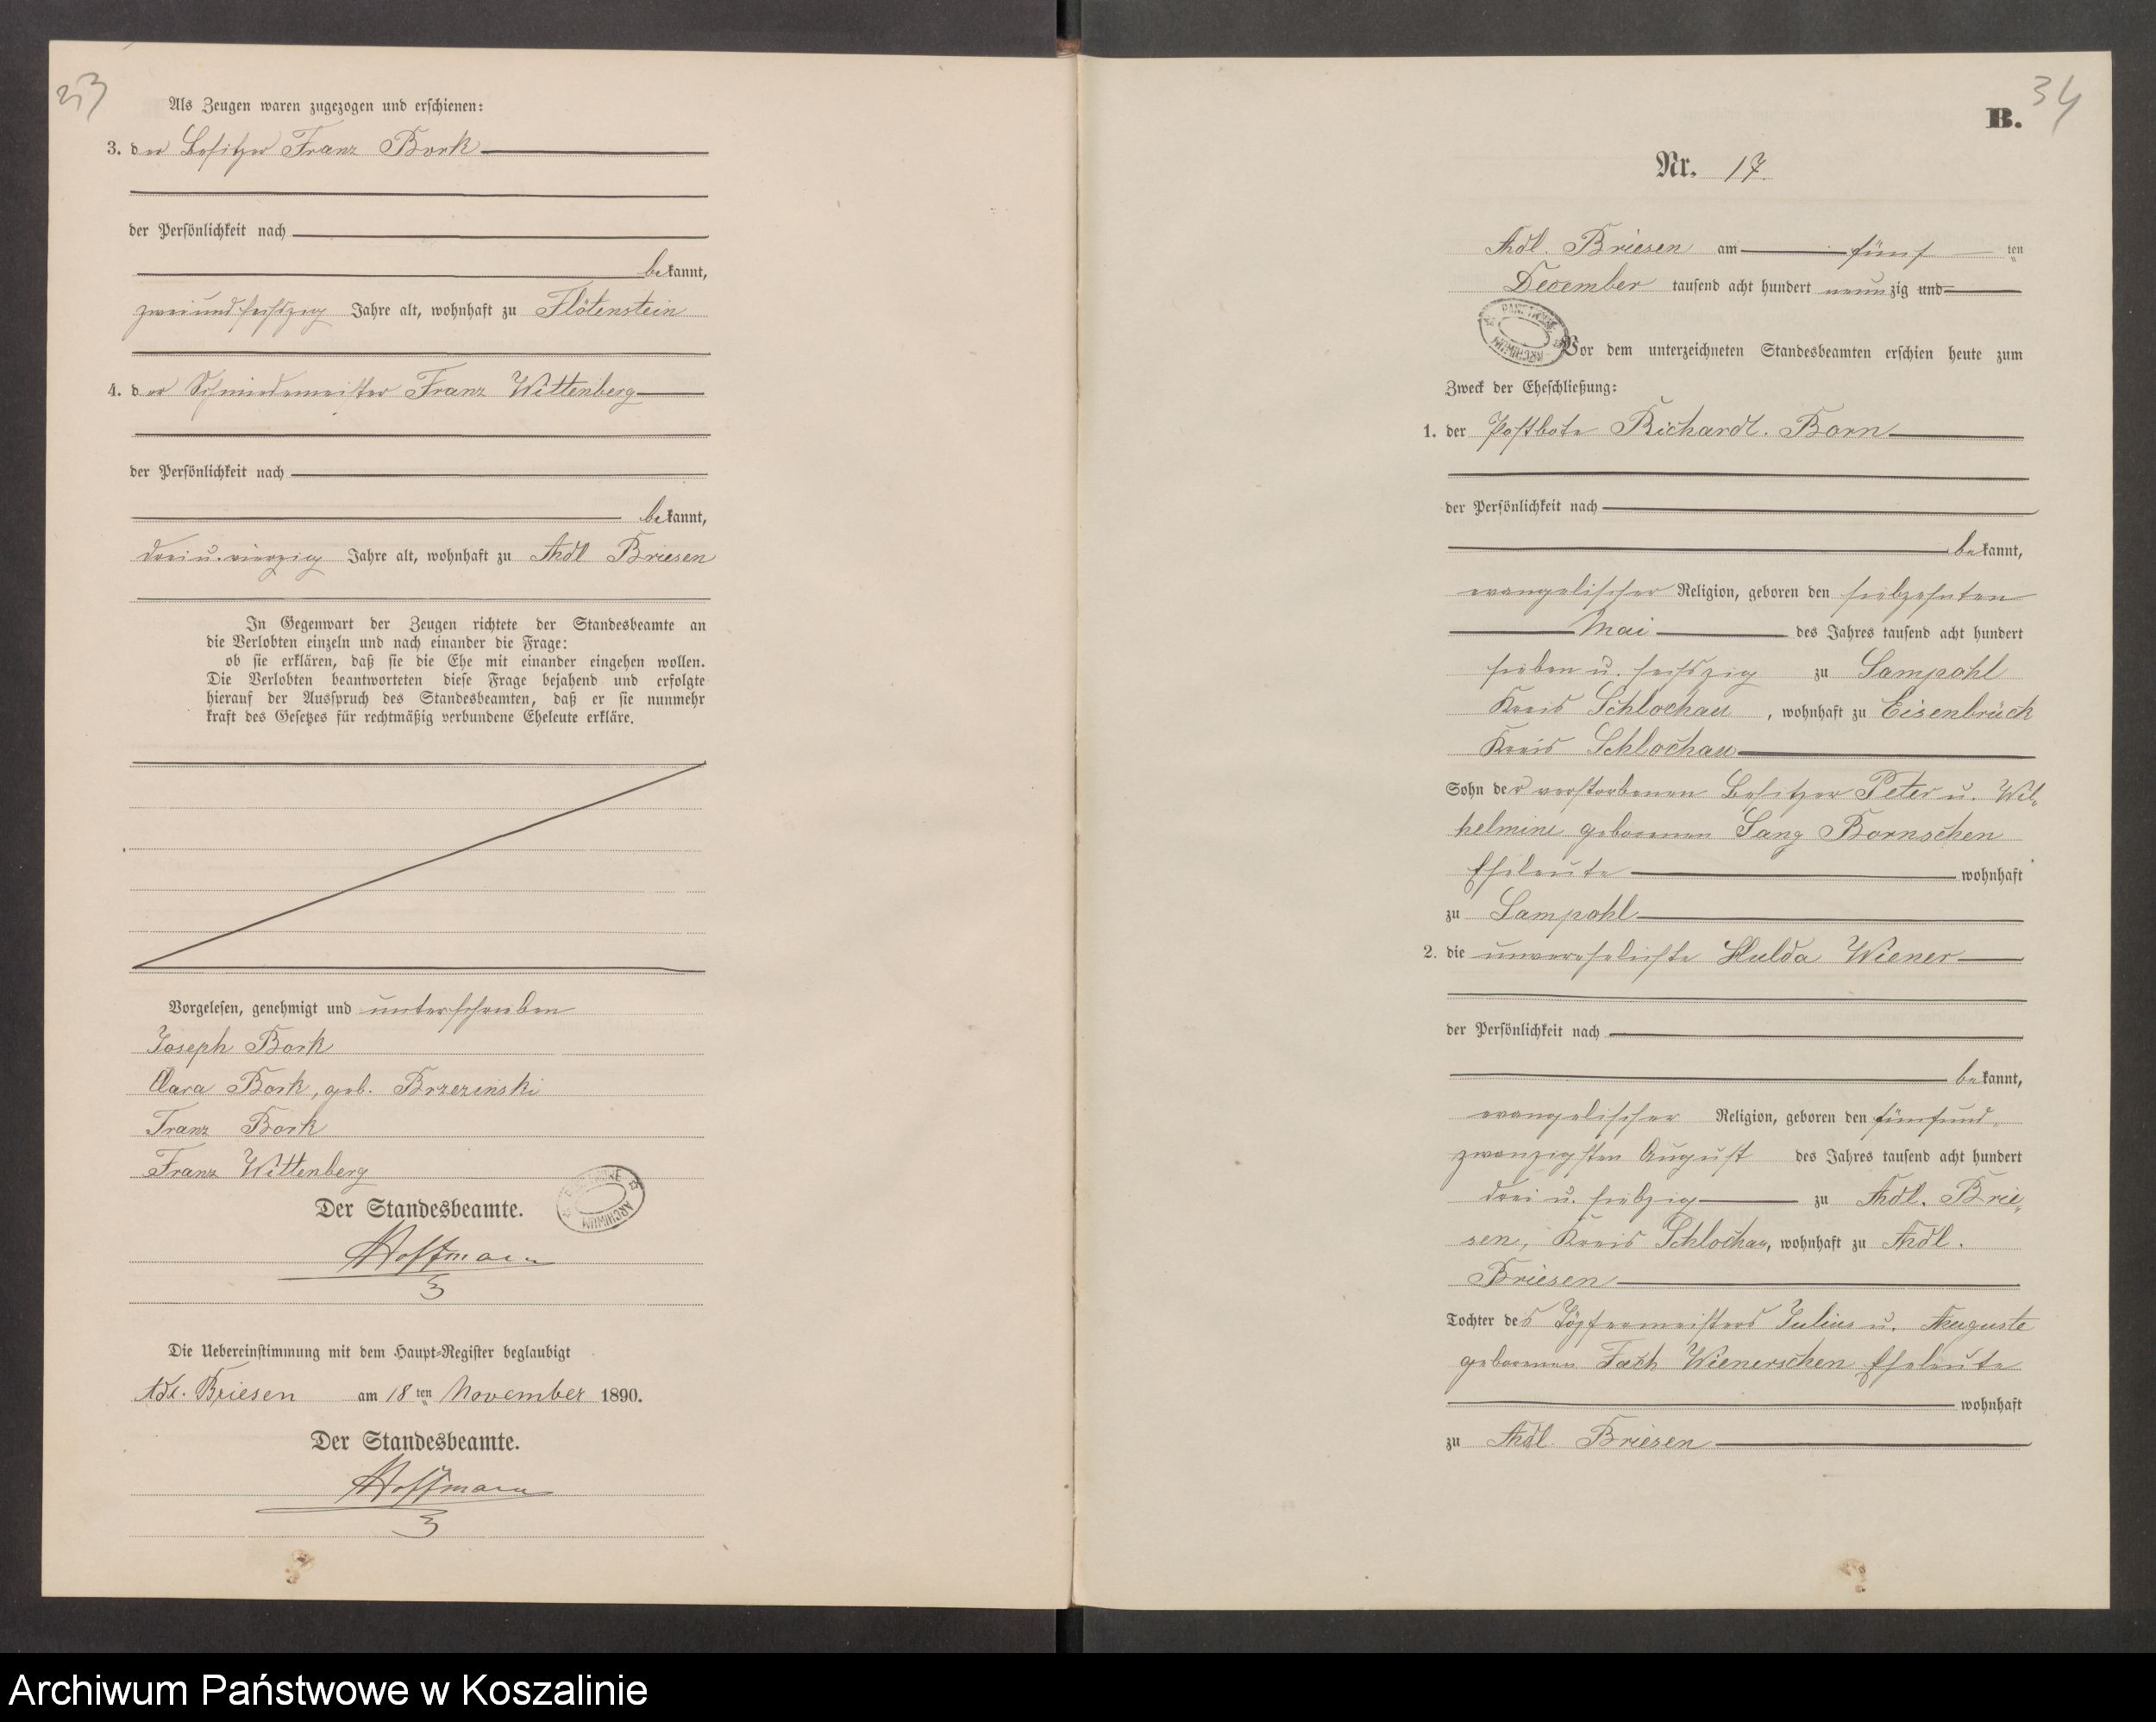 33
Als Zeugen waren zugezogen und erschienen:
3. der Besitzer Franz Bork
der Persönlichkeit nach
bekannt,
zweiundsechszig Jahre alt, wohnhaft zu Flötenstein
4. der Schmiedemeister Franz Wittenberg
der Persönlichkeit nach
bekannt,
drei u. vierzig Jahre alt, wohnhaft zu Adl Briesen
In Gegenwart der Zeugen richtete der Standesbeamte an
die Verlobten einzeln und nach einander die Frage:
ob sie erklären, daß sie die Ehe mit einander eingehen wollen.
Die Verlobten beantworteten diese Frage bejahend und erfolgte
hierauf der Ausspruch des Standesbeamten, daß er sie nunmehr
kraft des Gesetzes für rechtmäßig verbundene Eheleute erkläre.
Vorgelesen, genehmigt und unterschrieben
Joseph Bork
Clara Bork, geb. Brzezinski
Franz Bork
Franz Wittenberg
Der Standesbeamte.
Hoffmann
Die Uebereinstimmung mit dem Haupt-Register beglaubigt
Adl. Briesen am 18ten November 1890.
Der Standesbeamte.
Hoffmann
34
B.
Nr. 17.
Adl. Briesen am fünften
December tausend acht hundert neunzig und
Vor dem unterzeichneten Standesbeamten erschien heute zum
Zweck der Eheschließung:
1. der Postbote Richard Born
der Persönlichkeit nach
bekannt,
evangelischer Religion, geboren den siebzehnten
Mai des Jahres tausend acht hundert
sieben u. sechszig zu Sampohl
Kreis Schlochau, wohnhaft zu Eisenbrück
Kreis Schlochau
Sohn der verstorbenen Besitzer Peter u. Wil-
helmine geborenen Lang Bornschen
Eheleute wohnhaft
zu Sampohl
2. die unverehelichte Hulda Wiener
der Persönlichkeit nach
bekannt,
evangelischer Religion, geboren den fünfund-
zwanzigsten August des Jahres tausend acht hundert
drei u. siebzig zu Adl. Brie-
sen, Kreis Schlochau, wohnhaft zu Adl.
Briesen
Tochter des Töpfermeisters Julius u. Auguste
geborenen Wienerschen Eheleute
wohnhaft
zu Adl. Briesen
Archiwum Państwowe w Koszalinie